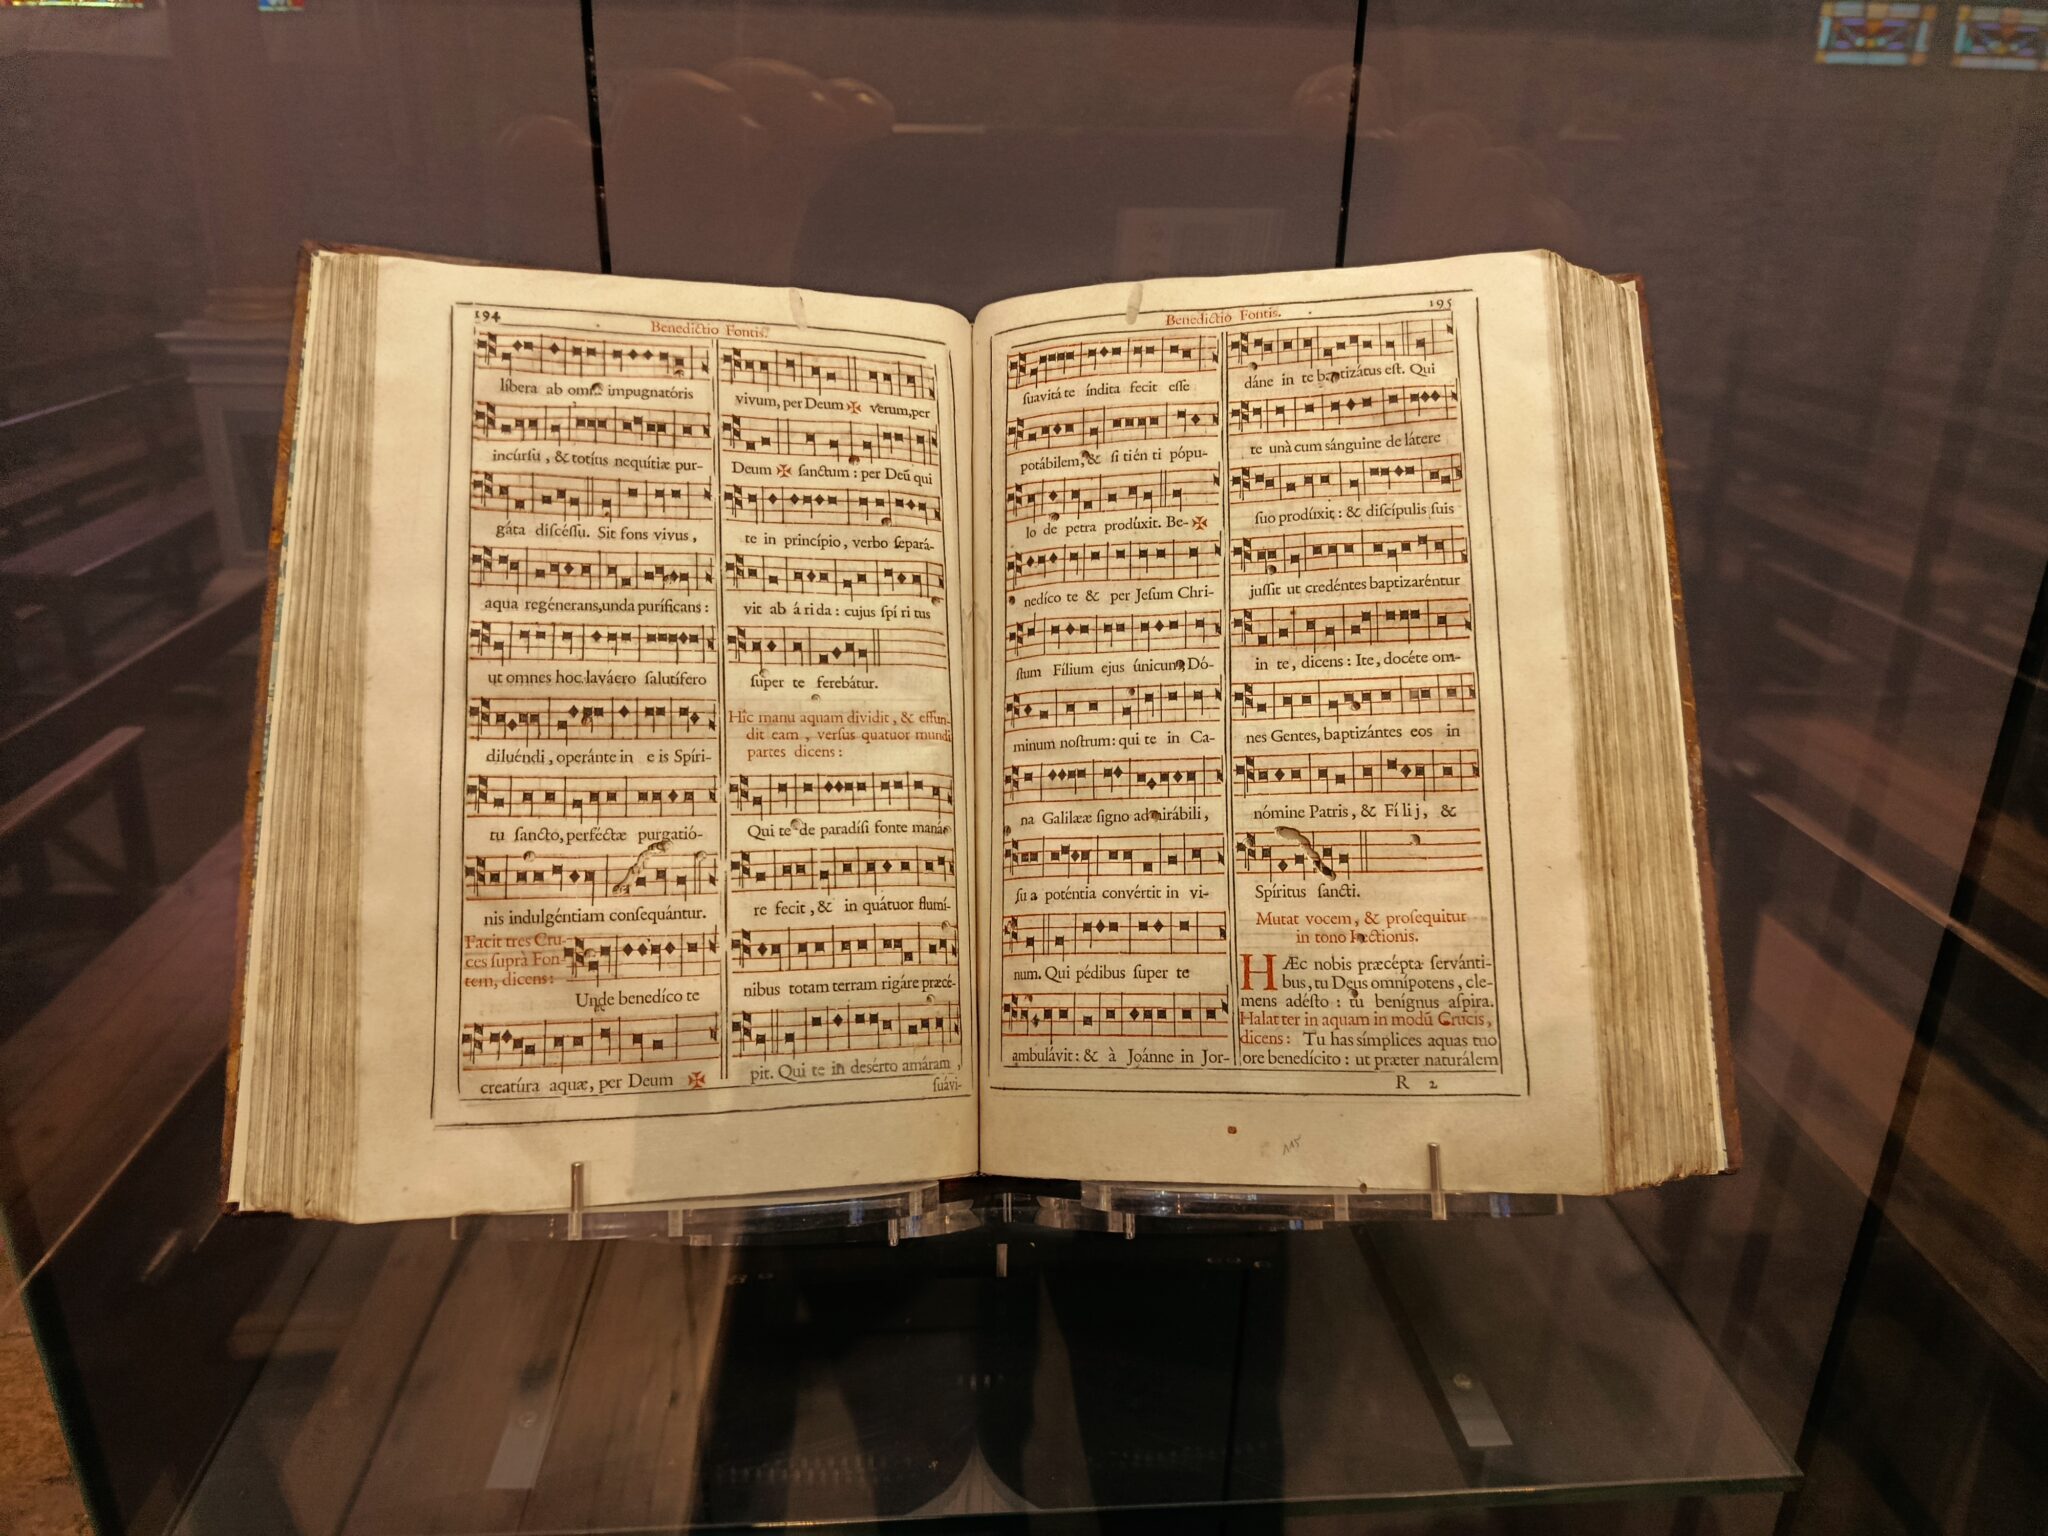 194
Benedictio Fontis.
líbera ab omni impugnatóris
incúrsu, & totíus nequítiæ pur-
gáta discéssu. Sit fons vivus,
aqua regénerans, unda puríficans:
ut omnes hoc lavácro salutífero
diluéndi, operánte in e is Spíri-
tu sancto, perféctæ purgatió-
nis indulgéntiam consequántur.
Facit tres Cru-
ces suprà Fon-
tem, dicens:
Unde benedíco te
creatúra aquæ, per Deum ✠
vivum, per Deum ✠ verum, per
Deum ✠ sanctum: per Deũ qui
te in princípio, verbo separá-
vit ab á ri da: cujus spí ri tus
súper te ferebátur.
Hîc manu aquam dividit, & effun-
dit eam, versus quatuor mundi
partes dicens:
Qui te de paradísi fonte manáre
re fecit, & in quátuor flumí-
nibus totam terram rigáre præcé-
pit. Qui te in desérto amáram,
suávi-
Benedictio Fontis.
195
suavitá te índita fecit esse
potábilem, & si tién ti pópu-
lo de petra prodúxit. Be- ✠
nedíco te & per Jesum Chri-
stum Fílium ejus únicum, Dó-
minum nostrum: qui te in Ca-
na Galilææ signo admirábili,
su a poténtia convértit in vi-
num. Qui pédibus super te
ambulávit: & à Joánne in Jor-
dáne in te baptizátus est. Qui
te unà cum sánguine de látere
suo prodúxit: & discípulis suis
jussit ut credéntes baptizaréntur
in te, dicens: Ite, docéte om-
nes Gentes, baptizántes eos in
nómine Patris, & Fí li j, &
Spíritus sancti.
Mutat vocem, & prosequitur
in tono Lectionis.
HÆc nobis præcépta servánti-
bus, tu Deus omnípotens, cle-
mens adésto: tu benígnus aspíra.
Halat ter in aquam in modũ Crucis,
dicens: Tu has símplices aquas tuo
ore benedícito: ut præter naturálem
R 2
115